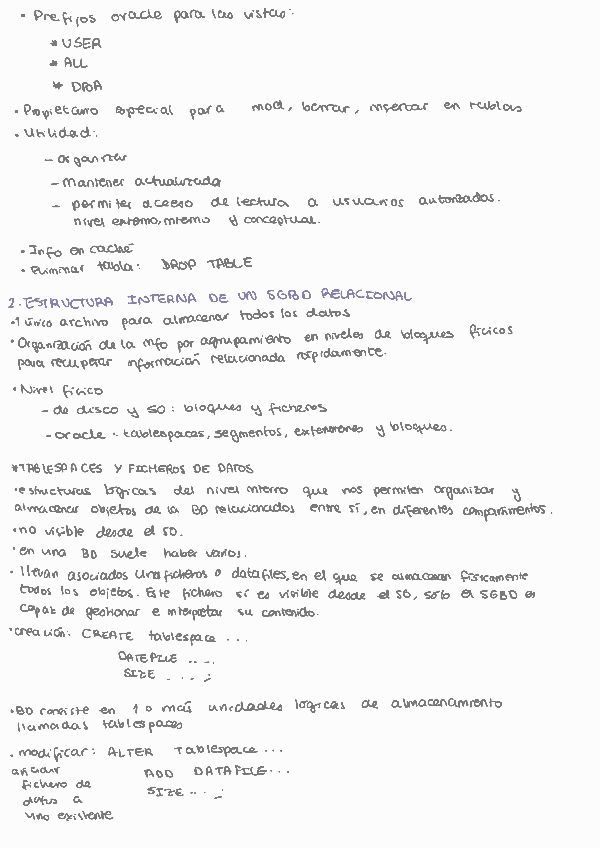 • Prefijos oracle para las vistas:
* USER
* ALL
* DBA
• Propietario especial para mod, borrar, insertar en tablas
• Utilidad:
- organizar
- mantener actualizada
- permitir acceso de lectura a usuarios autorizados.
nivel externo, interno y conceptual.
• Info en caché
• eliminar tabla: DROP TABLE
2. ESTRUCTURA INTERNA DE UN SGBD RELACIONAL
• 1 único archivo para almacenar todos los datos
• Organización de la info por agrupamiento en niveles de bloques físicos
para recuperar información relacionada rápidamente.
• Nivel físico
- de disco y SO: bloques y ficheros
- oracle: tablespaces, segmentos, extensiones y bloques.
* TABLESPACES Y FICHEROS DE DATOS
• estructuras lógicas del nivel interno que nos permiten organizar y
almacenar objetos de la BD relacionados entre sí, en diferentes compartimentos.
• no visible desde el SO.
• en una BD suele haber varios.
• llevan asociados unos ficheros o datafiles, en el que se almacenan físicamente
todos los objetos. Este fichero sí es visible desde el SO, solo el SGBD es
capaz de gestionar e interpretar su contenido.
• creación: CREATE tablespace ...
DATEFILE ...
SIZE ... ;
• BD consiste en 1 o más unidades lógicas de almacenamiento
llamadas tablespaces
• modificar: ALTER Tablespace ...
añadir ADD DATAFILE ...
fichero de SIZE ... ;
datos a
uno existente